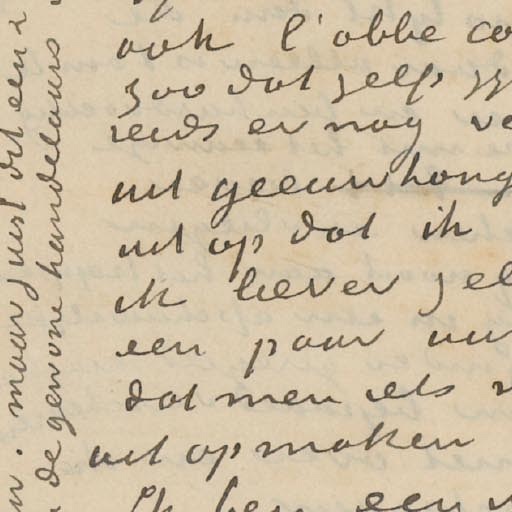 ook l'abbé co
zoo dat zelfs
reeds er nog ve
uit geeuwhong
uit op dat ik
ik liever zel
een paar uur
dat men iets
uit opmaken
Ik ben een
maar juist dit een
de gewone handelaars